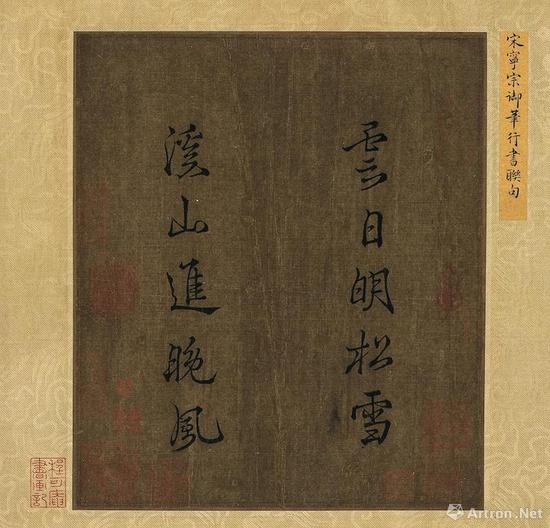 宋寧宗御筆行書聯句
雲日明松雪
溪山進晚風
Artron.Net